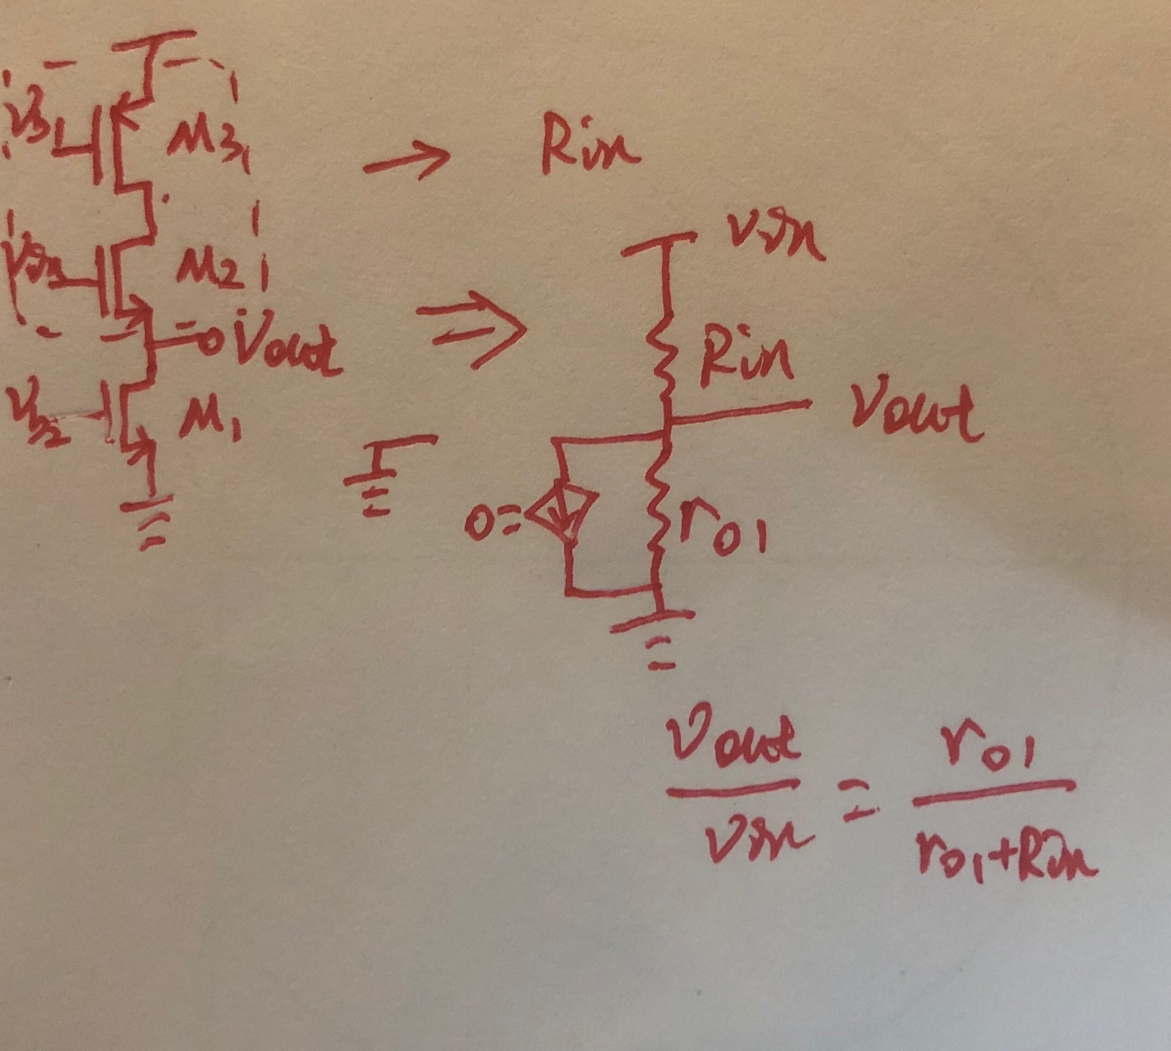 Vb1
M3
→ Rin
Vin
M2
Vout
Vb2
M1
⇒
Vin
Rin
Vout
0=
ro1
Vout/Vin = ro1/(ro1+Rin)